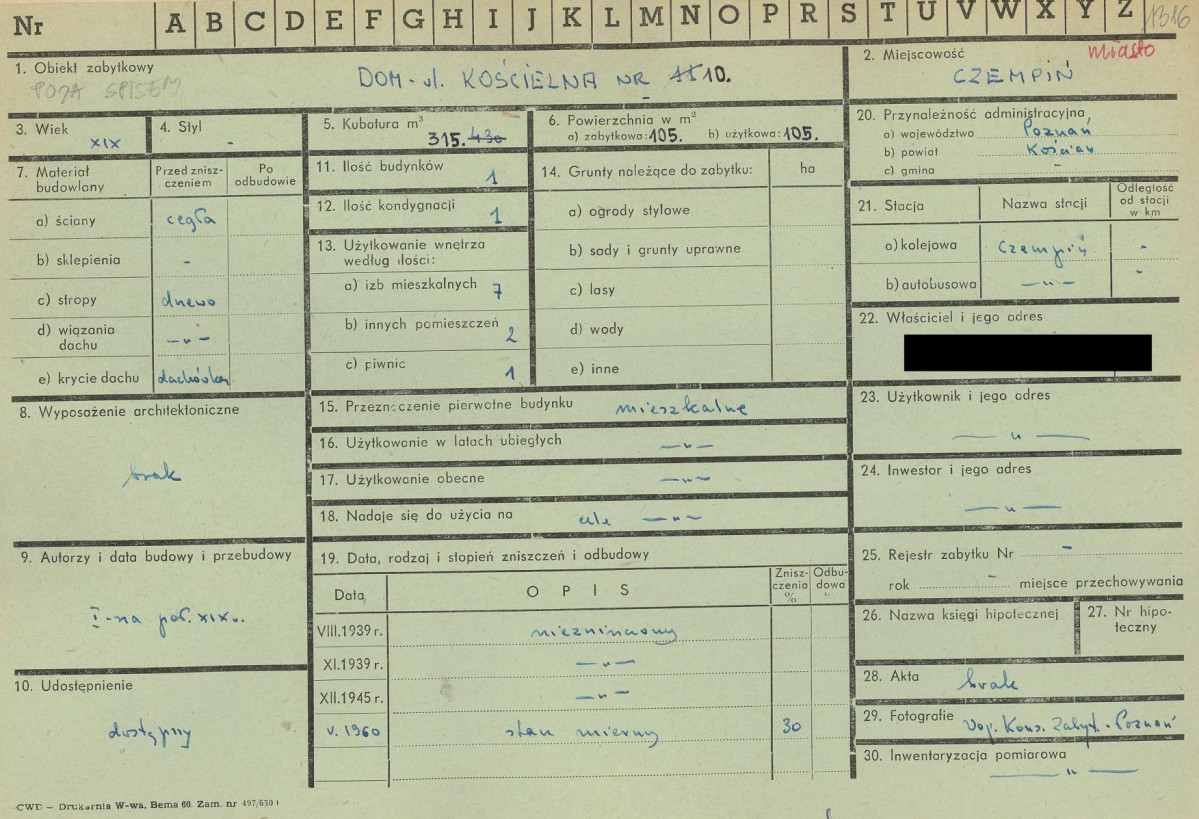 Nr A B C D E F G H I J K L M N O P R S T U V W X Y Z 1316
1. Obiekt zabytkowy
POZA SPISEM
DOM - ul. KOŚCIELNA NR 11 10.
2. Miejscowość miasto
CZEMPIŃ
3. Wiek
XIX
4. Styl
-
5. Kubatura m³
315. 430
6. Powierzchnia w m²
a) zabytkowa: 105. b) użytkowa: 105.
20. Przynależność administracyjna
a) województwo Poznań
b) powiat Kościan
c) gmina -
7. Materiał budowlany
Przed zniszczeniem
Po odbudowie
a) ściany cegła
b) sklepienia -
c) stropy drewno
d) wiązania dachu —„—
e) krycie dachu dachówka
11. Ilość budynków 1
12. Ilość kondygnacji 1
13. Użytkowanie wnętrza według ilości:
a) izb mieszkalnych 7
b) innych pomieszczeń 2
c) piwnic 1
14. Grunty należące do zabytku: ha
a) ogrody stylowe
b) sady i grunty uprawne
c) lasy
d) wody
e) inne
21. Stacja
Nazwa stacji
Odległość od stacji w km
a) kolejowa Czempiń -
b) autobusowa —„— -
22. Właściciel i jego adres
8. Wyposażenie architektoniczne
brak
15. Przeznaczenie pierwotne budynku mieszkalne
16. Użytkowanie w latach ubiegłych —„—
17. Użytkowanie obecne —„—
18. Nadaje się do użycia na cele —„—
23. Użytkownik i jego adres
—„—
24. Inwestor i jego adres
—„—
9. Autorzy i data budowy i przebudowy
I-na poł. XIX w.
19. Data, rodzaj i stopień zniszczeń i odbudowy
Data
OPIS
Zniszczenia %
Odbudowa %
VIII.1939 r. niezniszczony
XI.1939 r. —„—
XII.1945 r. —„—
V. 1960 stan mierny 30
25. Rejestr zabytku Nr -
rok - miejsce przechowywania
26. Nazwa księgi hipotecznej
27. Nr hipoteczny
10. Udostępnienie
dostępny
28. Akta brak
29. Fotografie Woj. Kons. Zabyt. - Poznań
30. Inwentaryzacja pomiarowa
—„—
CWD – Drukarnia W-wa, Bema 60. Zam. nr 497/650